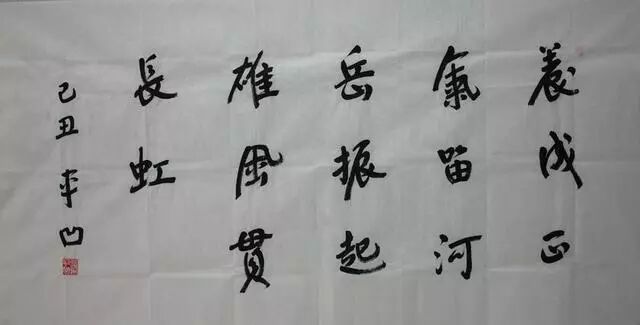 養成正
氣留河
岳振起
雄風貫
長虹
己丑平凹